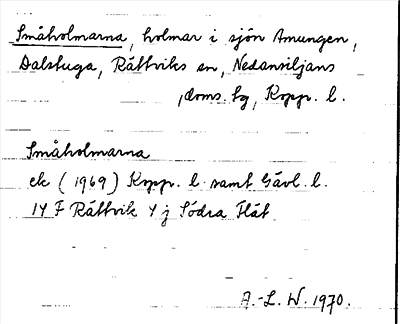 Småholmarna, holmar i sjön Amungen,
Dalstuga, Rättviks sn, Nedansiljans
doms. tg, Kopp. l.
Småholmarna
ek (1969) Kopp. l. samt Gävl. l.
14 F Rättvik 4 j Södra Flät
A.-L. W. 1970.